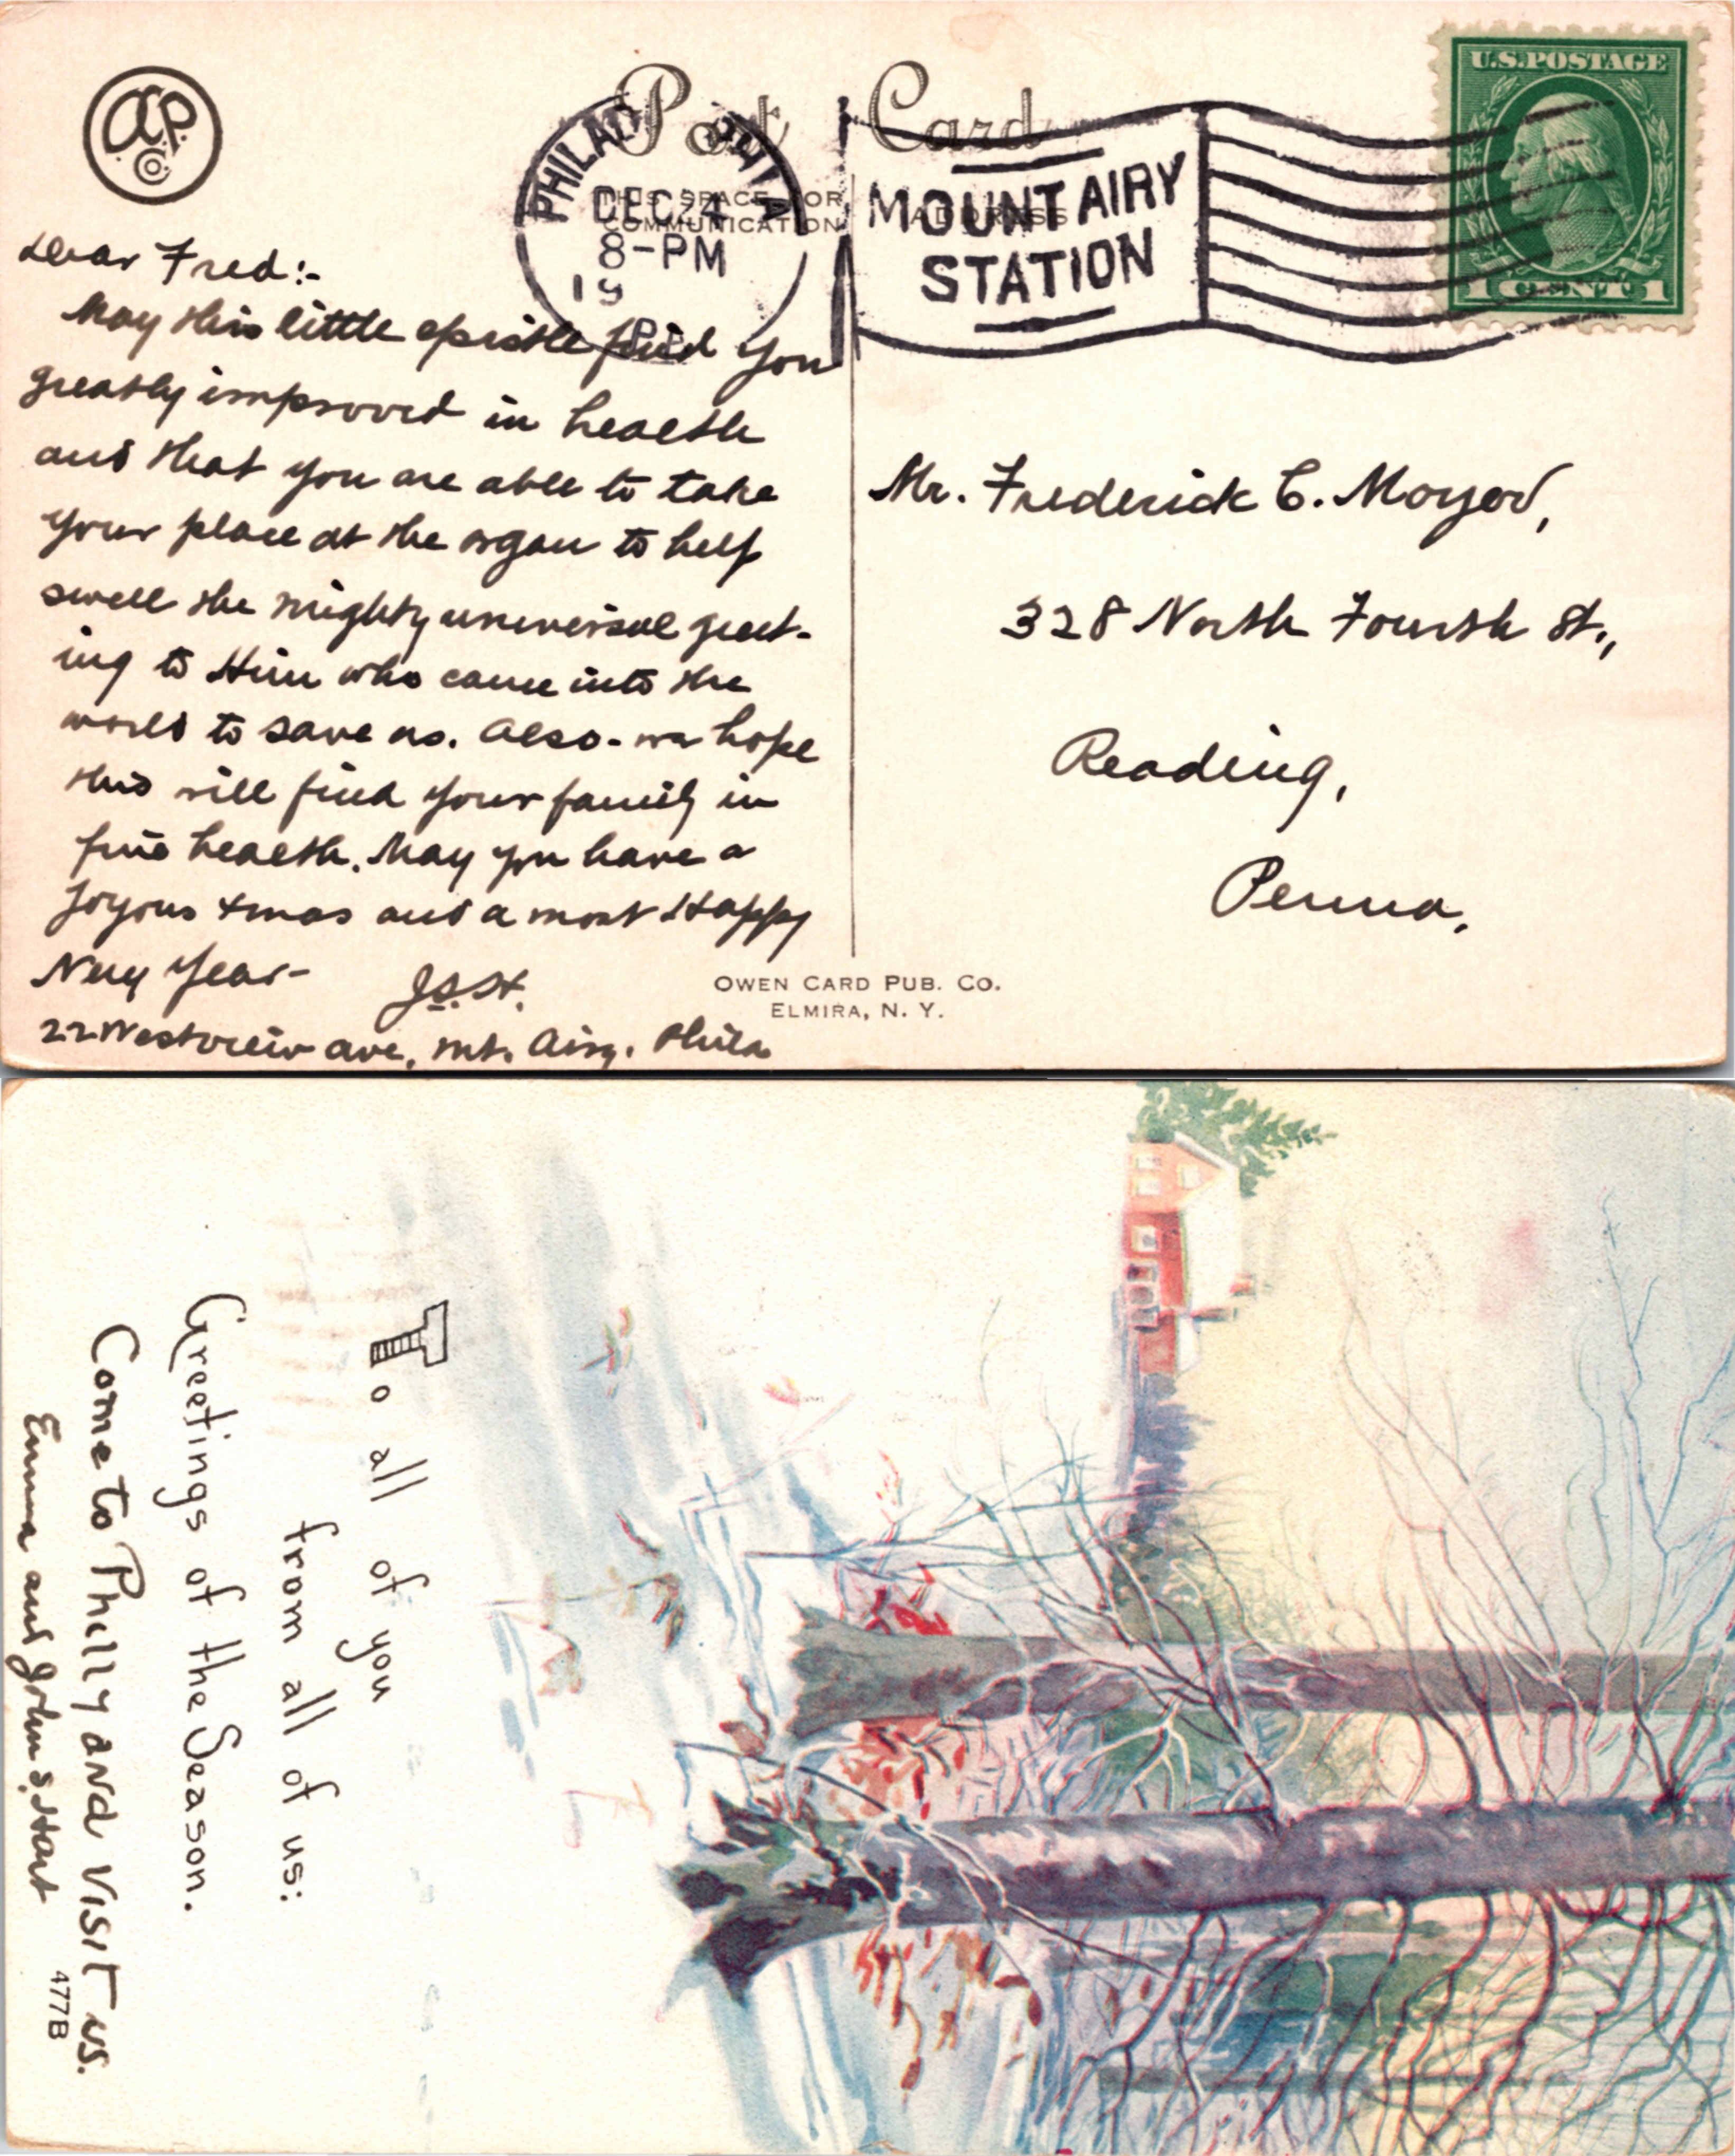 O.C.P.
Co.
Post Card
PHILADELPHIA
DEC 24
8-PM
PA.
MOUNT AIRY
STATION
U.S. POSTAGE
1 CENT 1
THIS SPACE FOR
COMMUNICATION
ADDRESS
Dear Fred:-
May this little epistle find you
greatly improved in health
and that you are able to take
your place at the organ to help
swell the mighty universal greet-
ing to Him who came into the
world to save us. Also- we hope
this will find your family in
fine health. May you have a
Joyous Xmas and a most Happy
New Year-
J.S.H.
22 Westview ave. Mt. Airy. Phila
Mr. Frederick C. Moyer,
328 North Fourth St.,
Reading,
Penna.
OWEN CARD PUB. CO.
ELMIRA, N. Y.
To all of you
from all of us:
Greetings of the Season.
Come to Philly and visit us.
Emma and John S. Hart
477B